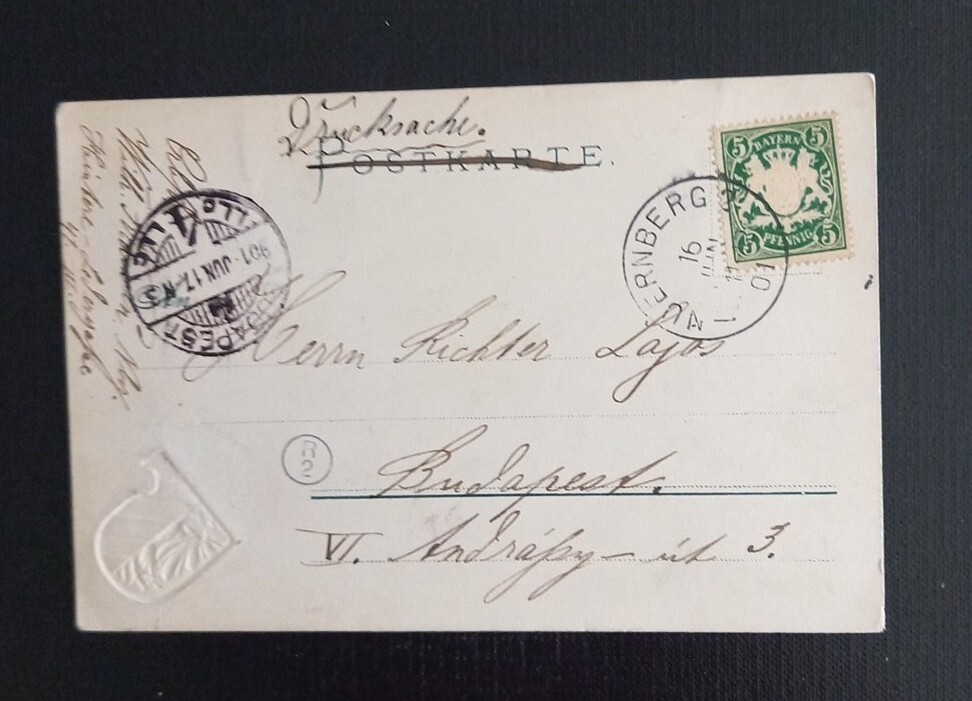 Drucksache.
POSTKARTE.
5 5
BAYERN
PFENNIG
5 5
NUERNBERG 2
16
JUN
01
BUDAPEST
901 JUN 17
Herrn Richter Lajos
R2
Budapest.
VI. Andrássy-út 3.
Wilh.
Hintere